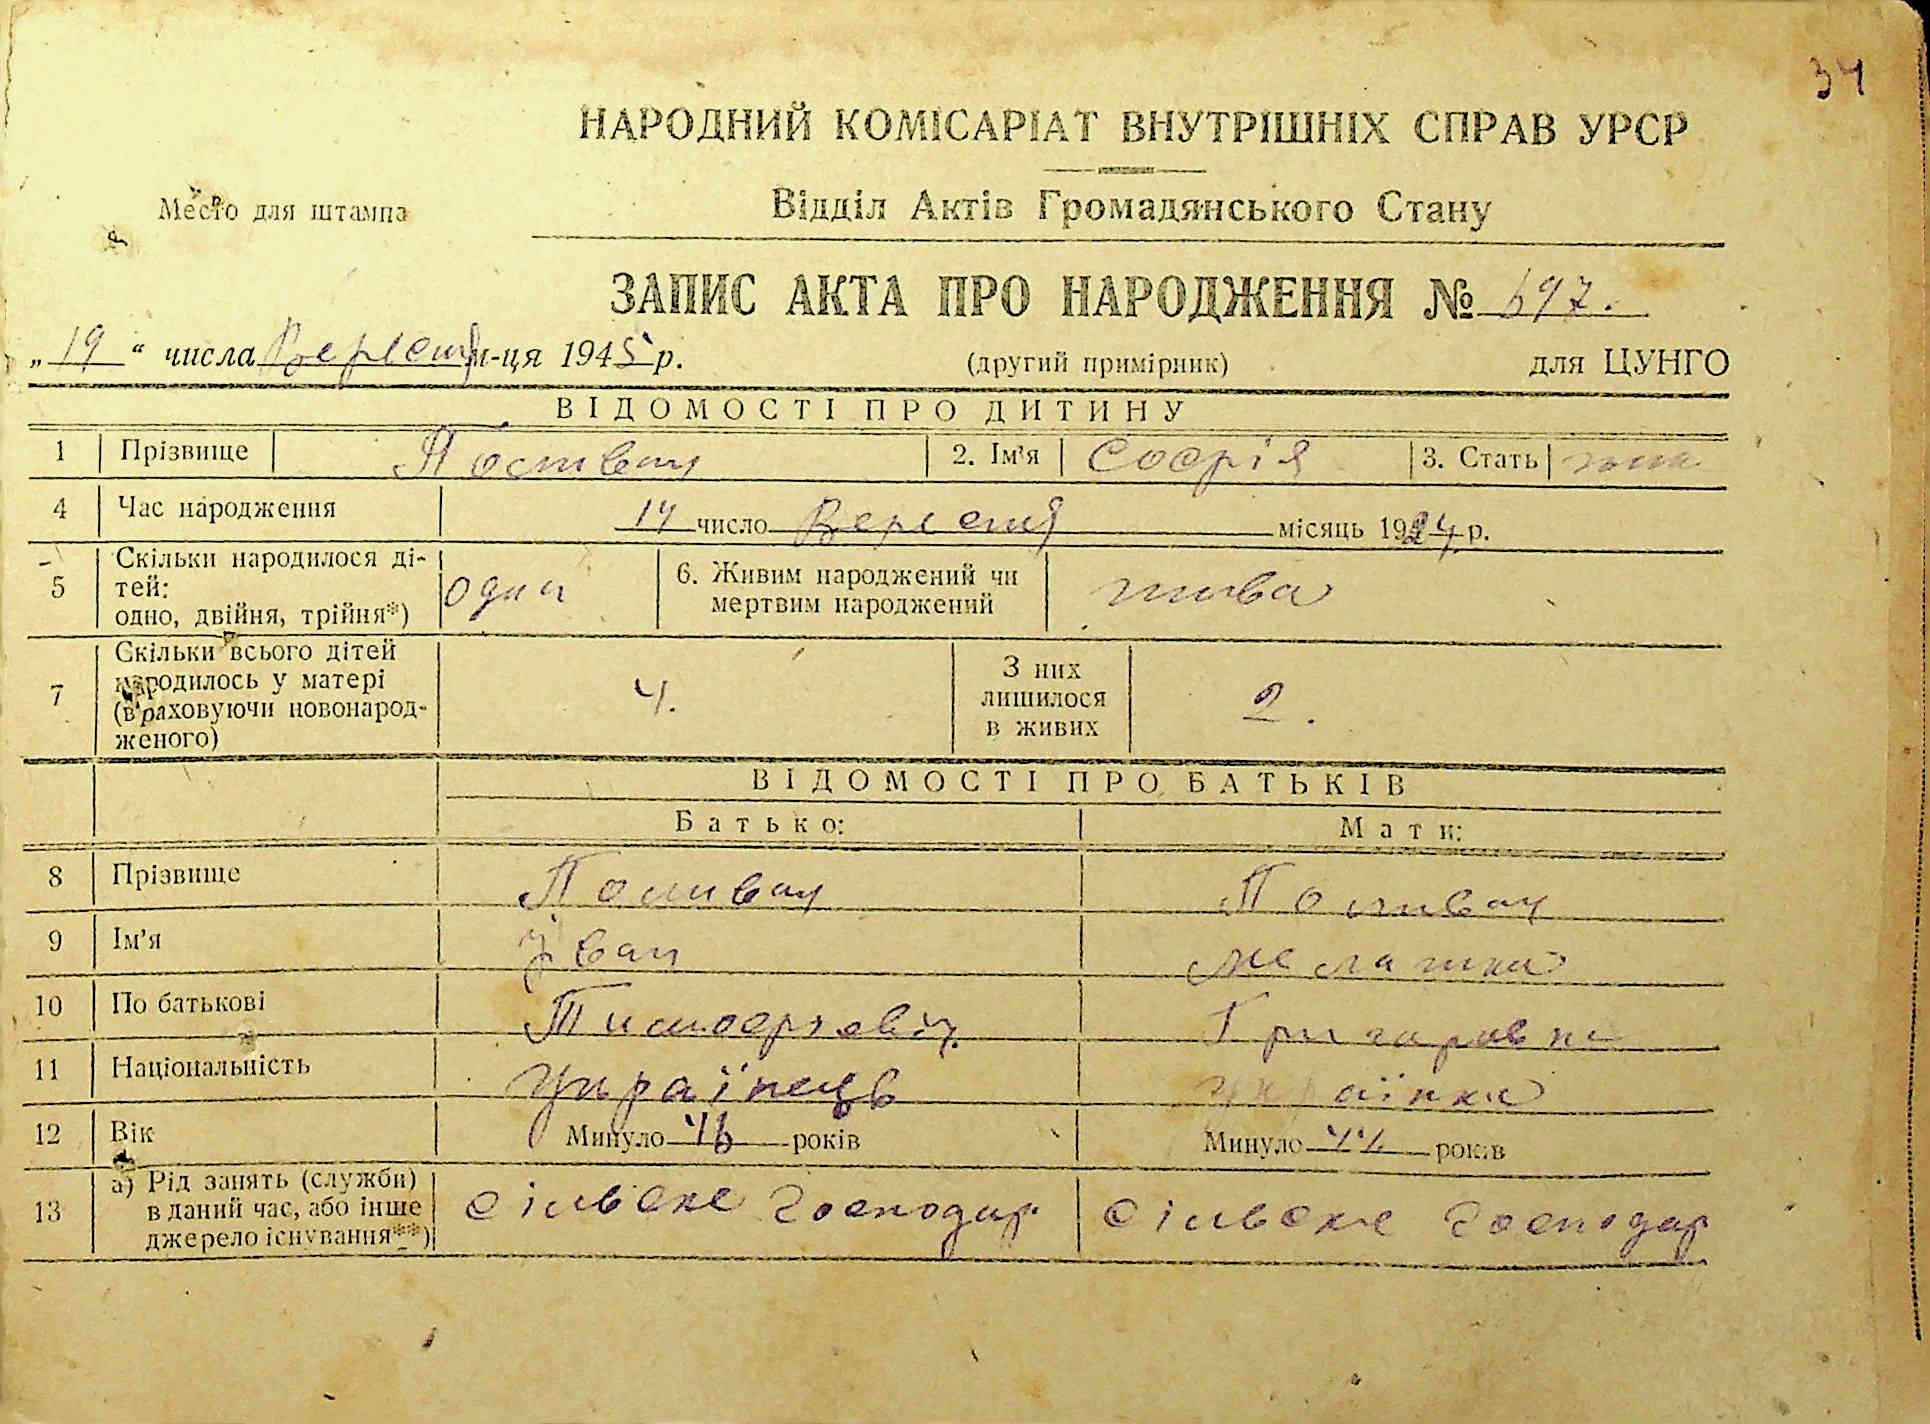 34
НАРОДНИЙ КОМІСАРІАТ ВНУТРІШНІХ СПРАВ УРСР
Место для штампа
Відділ Актів Громадянського Стану
ЗАПИС АКТА ПРО НАРОДЖЕННЯ № 697.
„19“ числа Вересня м-ця 1945 р. (другий примірник) для ЦУНГО
ВІДОМОСТІ ПРО ДИТИНУ
1 Прізвище 2. Ім'я Софія 3. Стать жін.
4 Час народження 14 число Вересня місяць 1924 р.
5 Скільки народилося ді-
тей:
одно, двійня, трійня*) одна 6. Живим народжений чи
мертвим народжений жива
7 Скільки всього дітей
народилось у матері
(враховуючи новонарод-
женого) 4. З них
лишилося
в живих 2.
ВІДОМОСТІ ПРО БАТЬКІВ
Батько: Мати:
8 Прізвище
9 Ім'я Іван Мелашка
10 По батькові Тимофієвіч Григоровна
11 Національність Українець українка
12 Вік Минуло 46 років Минуло 44 років
13 а) Рід занять (служби)
в даний час, або інше
джерело існування**) сільське господар сільське господар